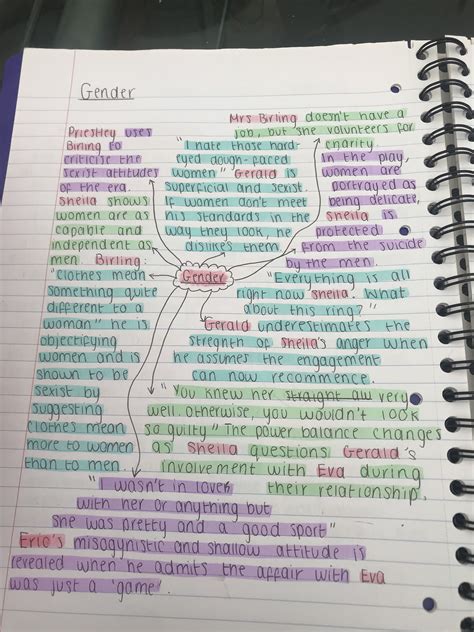 Gender
Priestley uses
Birling to
criticise the
sexist attitudes
of the era.
Sheila shows
women are as
capable and
independent as
men. Birling:
"clothes mean
something quite
different to a
woman" he is
objectifying
women and is
shown to be
sexist by
suggesting
clothes mean
more to women
than to men.
"I hate those hard-
eyed dough-faced
women" Gerald is
superficial and sexist.
If women don't meet
his standards in the
way they look, he
dislikes them.
Mrs Birling doesn't have a
job, but she volunteers for
charity.
In the play,
women are
portrayed as
being delicate,
Sheila is
protected
from the suicide
by the men.
Gender
"Everything is all
right now Sheila. What
about this ring?"
Gerald underestimates the
streghth of Sheila's anger when
he assumes the engagement
can now recommence.
"You knew her straight all very
well. otherwise, you wouldn't look
so guilty" The power balance changes
as Sheila questions Gerald's
involvement with Eva during
their relationship.
"I wasn't in love
with her or anything but
she was pretty and a good sport"
Eric's misogynistic and shallow attitude is
revealed when he admits the affair with Eva
was just a 'game'.